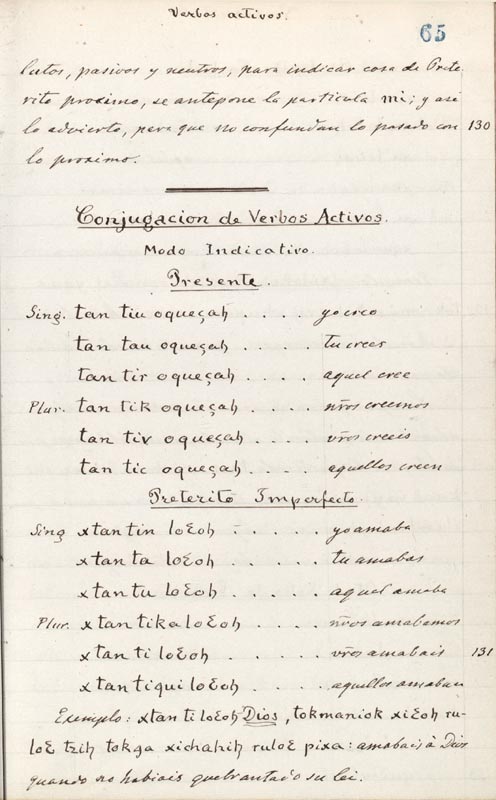 Verbos activos.
65
lutos, pasivos y neutros, para indicar cosa de Prete-
rito proximo, se antepone la particula mi; y asi
lo advierto, para que no confundan lo pasado con 130
lo proximo.
Conjugacion de Verbos Activos.
Modo Indicativo.
Presente.
Sing. tan tiu oqueçaꜧ . . . . yo creo
tan tau oqueçaꜧ . . . . tu crees
tan tir oqueçaꜧ . . . . aquel cree
Plur. tan tik oqueçaꜧ . . . . nr̃os creemos
tan tiv oqueçaꜧ . . . . vr̃os creeis
tan tic oqueçaꜧ . . . . aquellos creen
Preterito Imperfecto.
Sing xtan tin loƐoꜧ . . . . yo amaba
xtan ta loƐoꜧ . . . . tu amabas
xtan tu loƐoꜧ . . . . aquel amaba
Plur. xtan tika loƐoꜧ . . . . nr̃os amabamos
xtan ti loƐoꜧ . . . . vr̃os amabais 131
xtan tiqui loƐoꜧ . . . . aquellos amaban
Exemplo: xtan ti loƐoꜧ Dios, tokmaniok xiƐoꜧ ru-
loƐ tziꜧ tokga xichaꜧiꜧ ruloƐ pixa: amabais à Dios
quando no habiais quebrantado su lei.